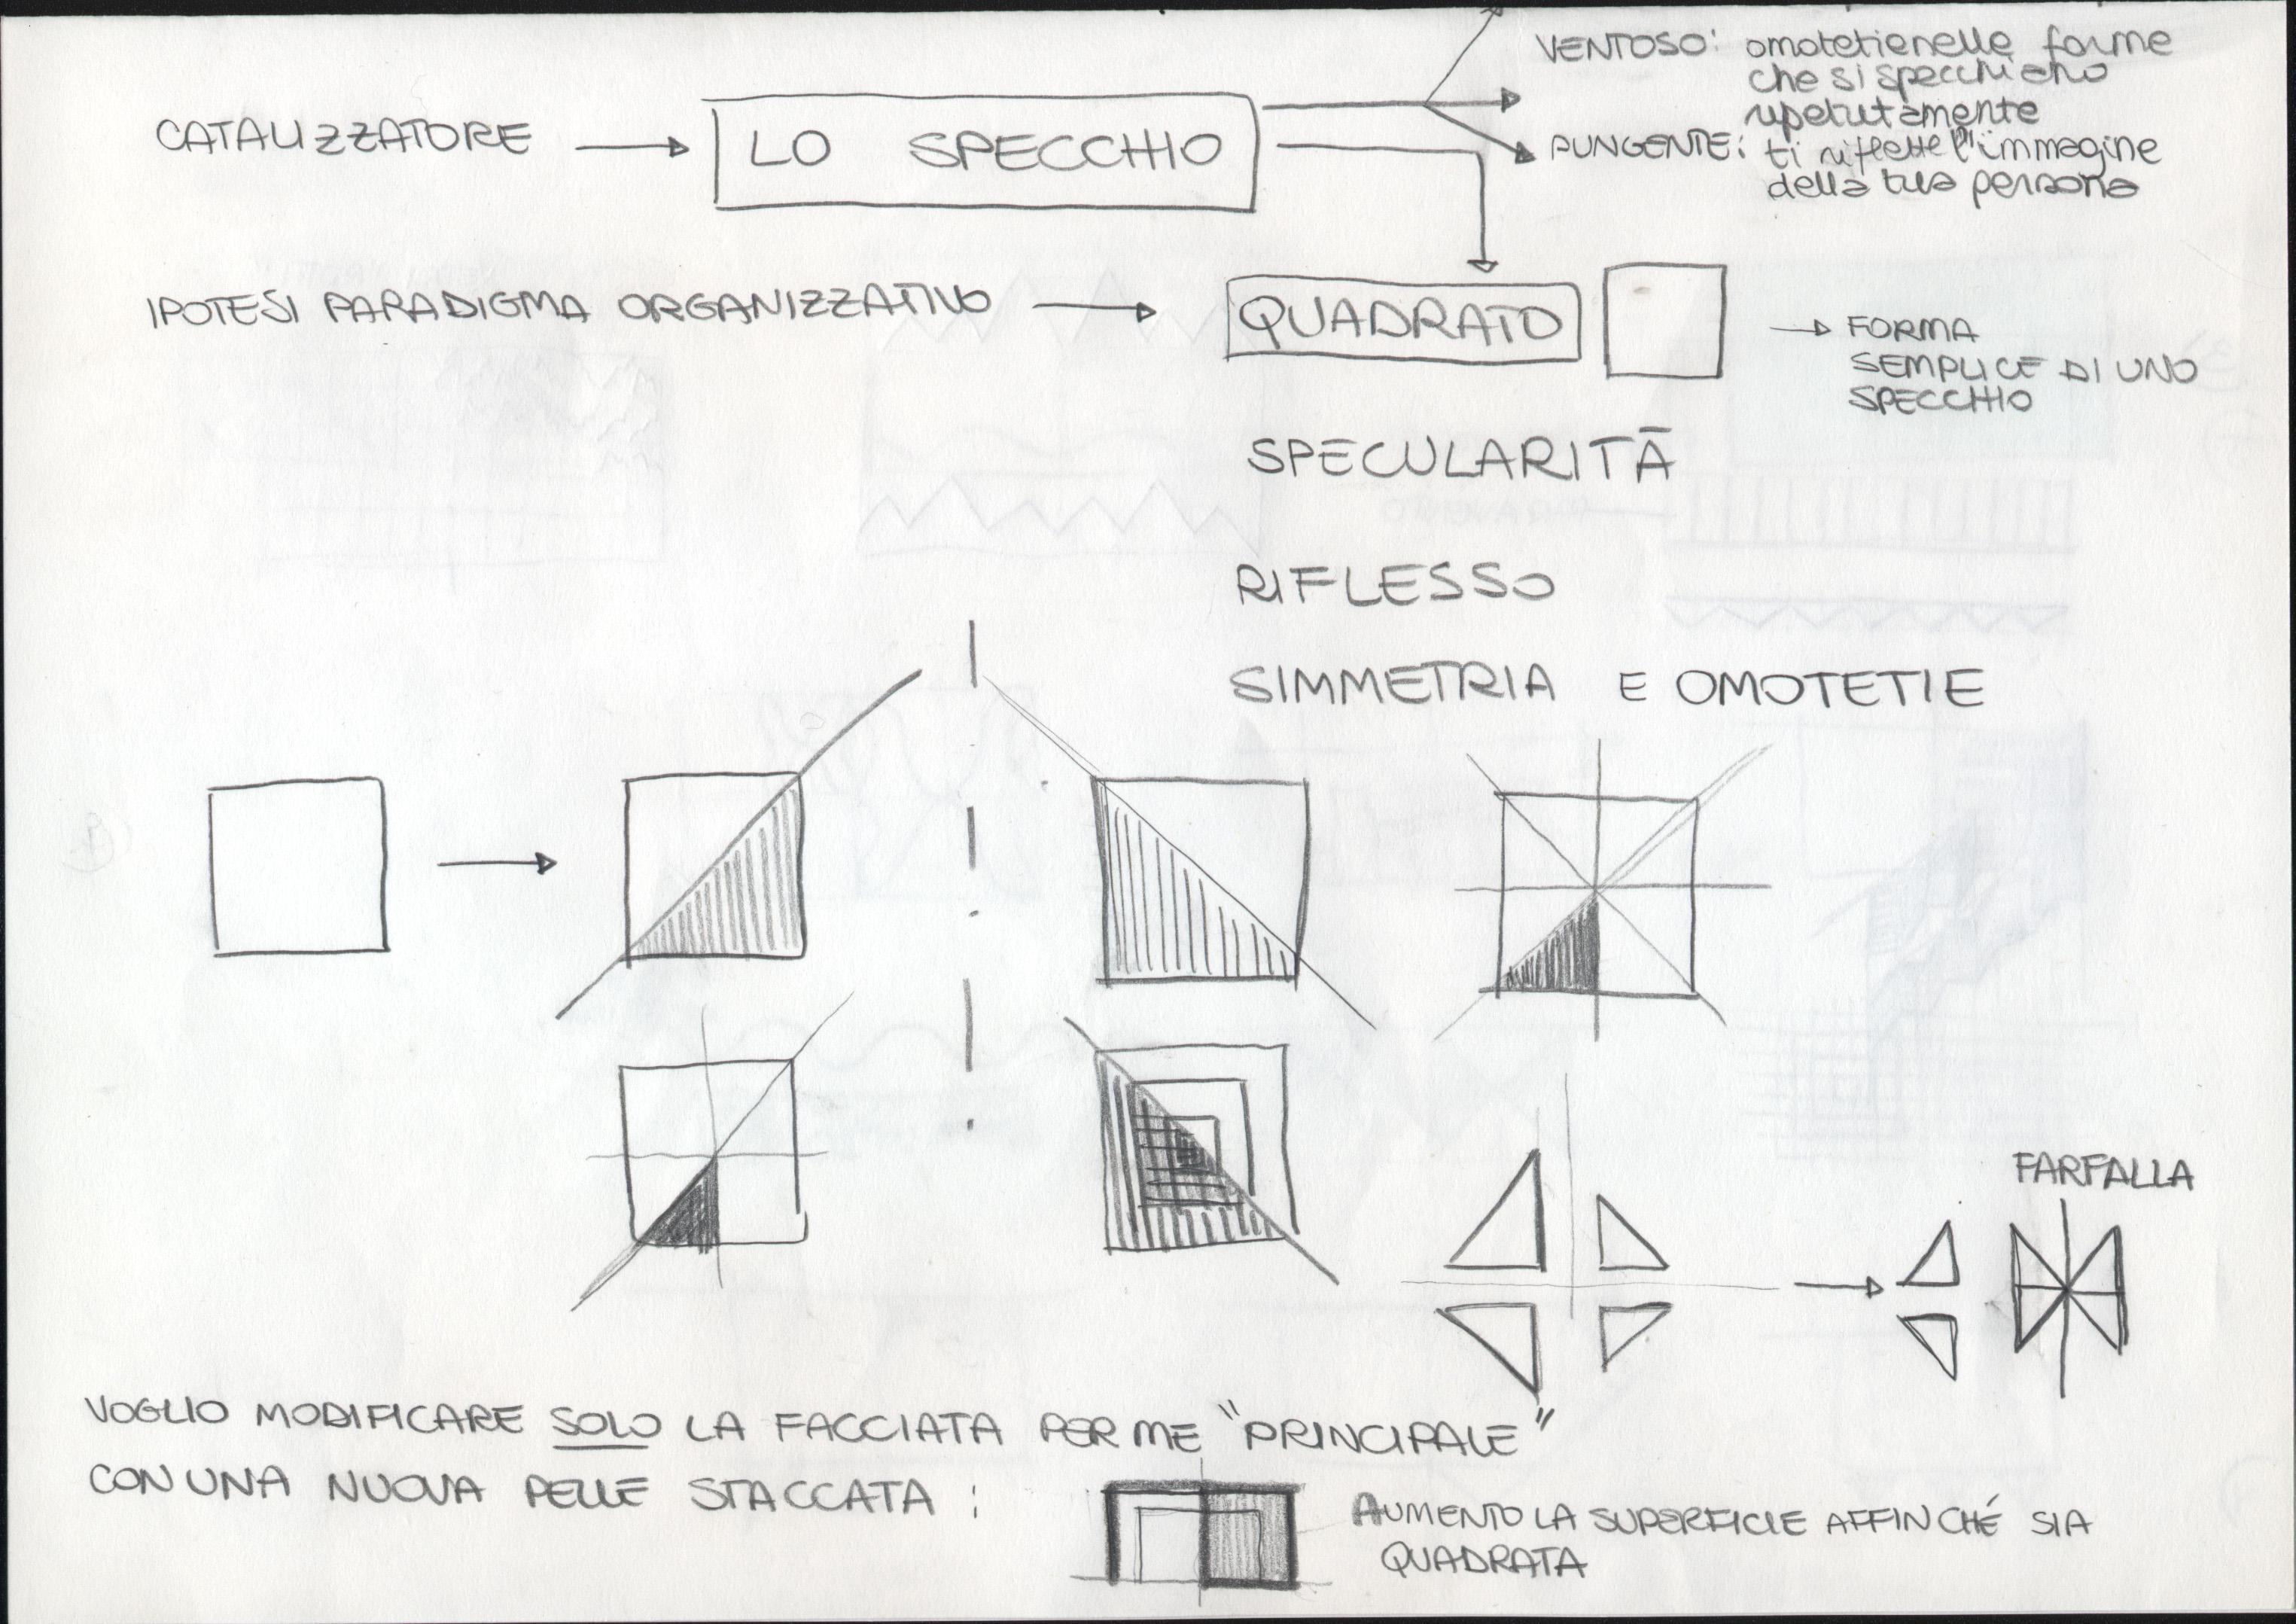 VENTOSO: omotetie nelle forme
che si specchiano
ripetutamente
CATALIZZATORE → LO SPECCHIO
PUNGENTE: ti riflette l'immagine
della tua persona
IPOTESI PARADIGMA ORGANIZZATIVO → QUADRATO
→ FORMA
SEMPLICE DI UNO
SPECCHIO
SPECULARITÀ
RIFLESSO
SIMMETRIA E OMOTETIE
FARFALLA
VOGLIO MODIFICARE SOLO LA FACCIATA PER ME "PRINCIPALE"
CON UNA NUOVA PELLE STACCATA :
AUMENTO LA SUPERFICIE AFFINCHÉ SIA
QUADRATA